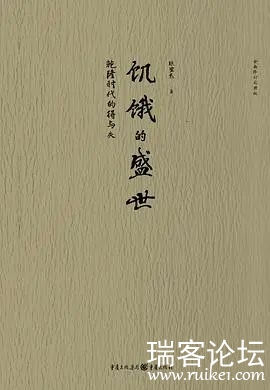 饥饿的盛世
乾隆时代的得与失
张宏杰 著
重庆出版集团 重庆出版社
瑞客论坛
www.ruikei.com